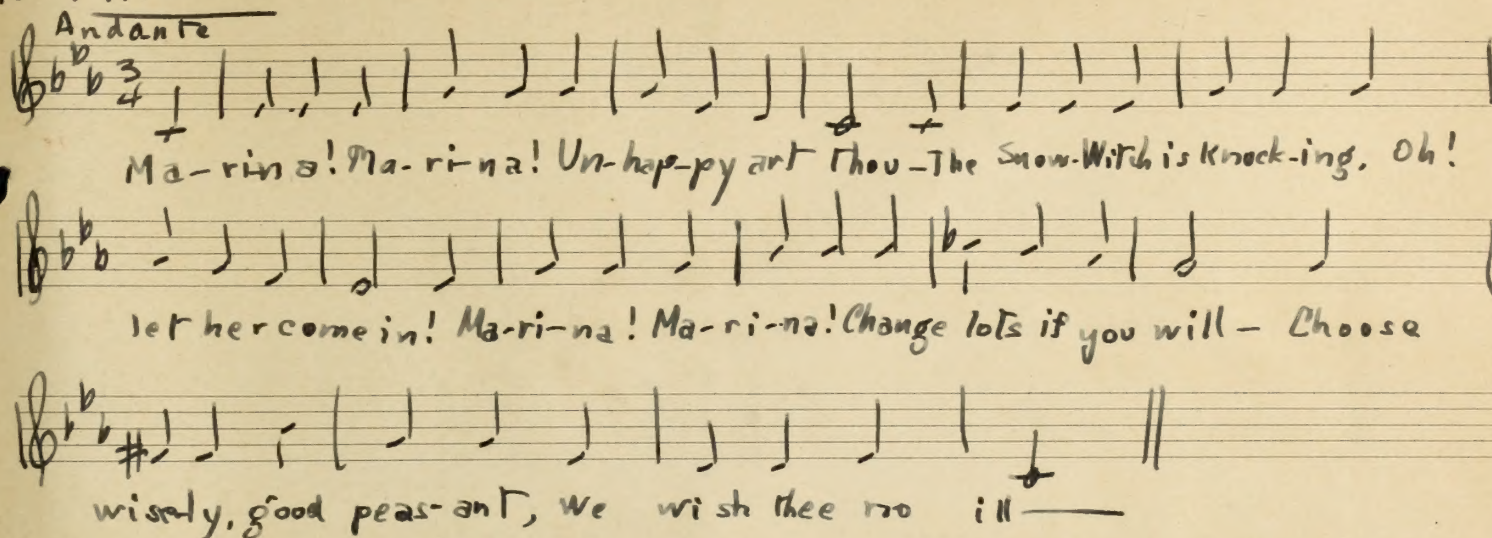 Andante
3
4
Ma-rina! Ma-ri-na! Un-hap-py art Thou-The Snow-Witch is Knock-ing. Oh!
let her come in! Ma-ri-na! Ma-ri-na! Change lots if you will - Choose
wisely, good peas-ant, We wish thee no ill